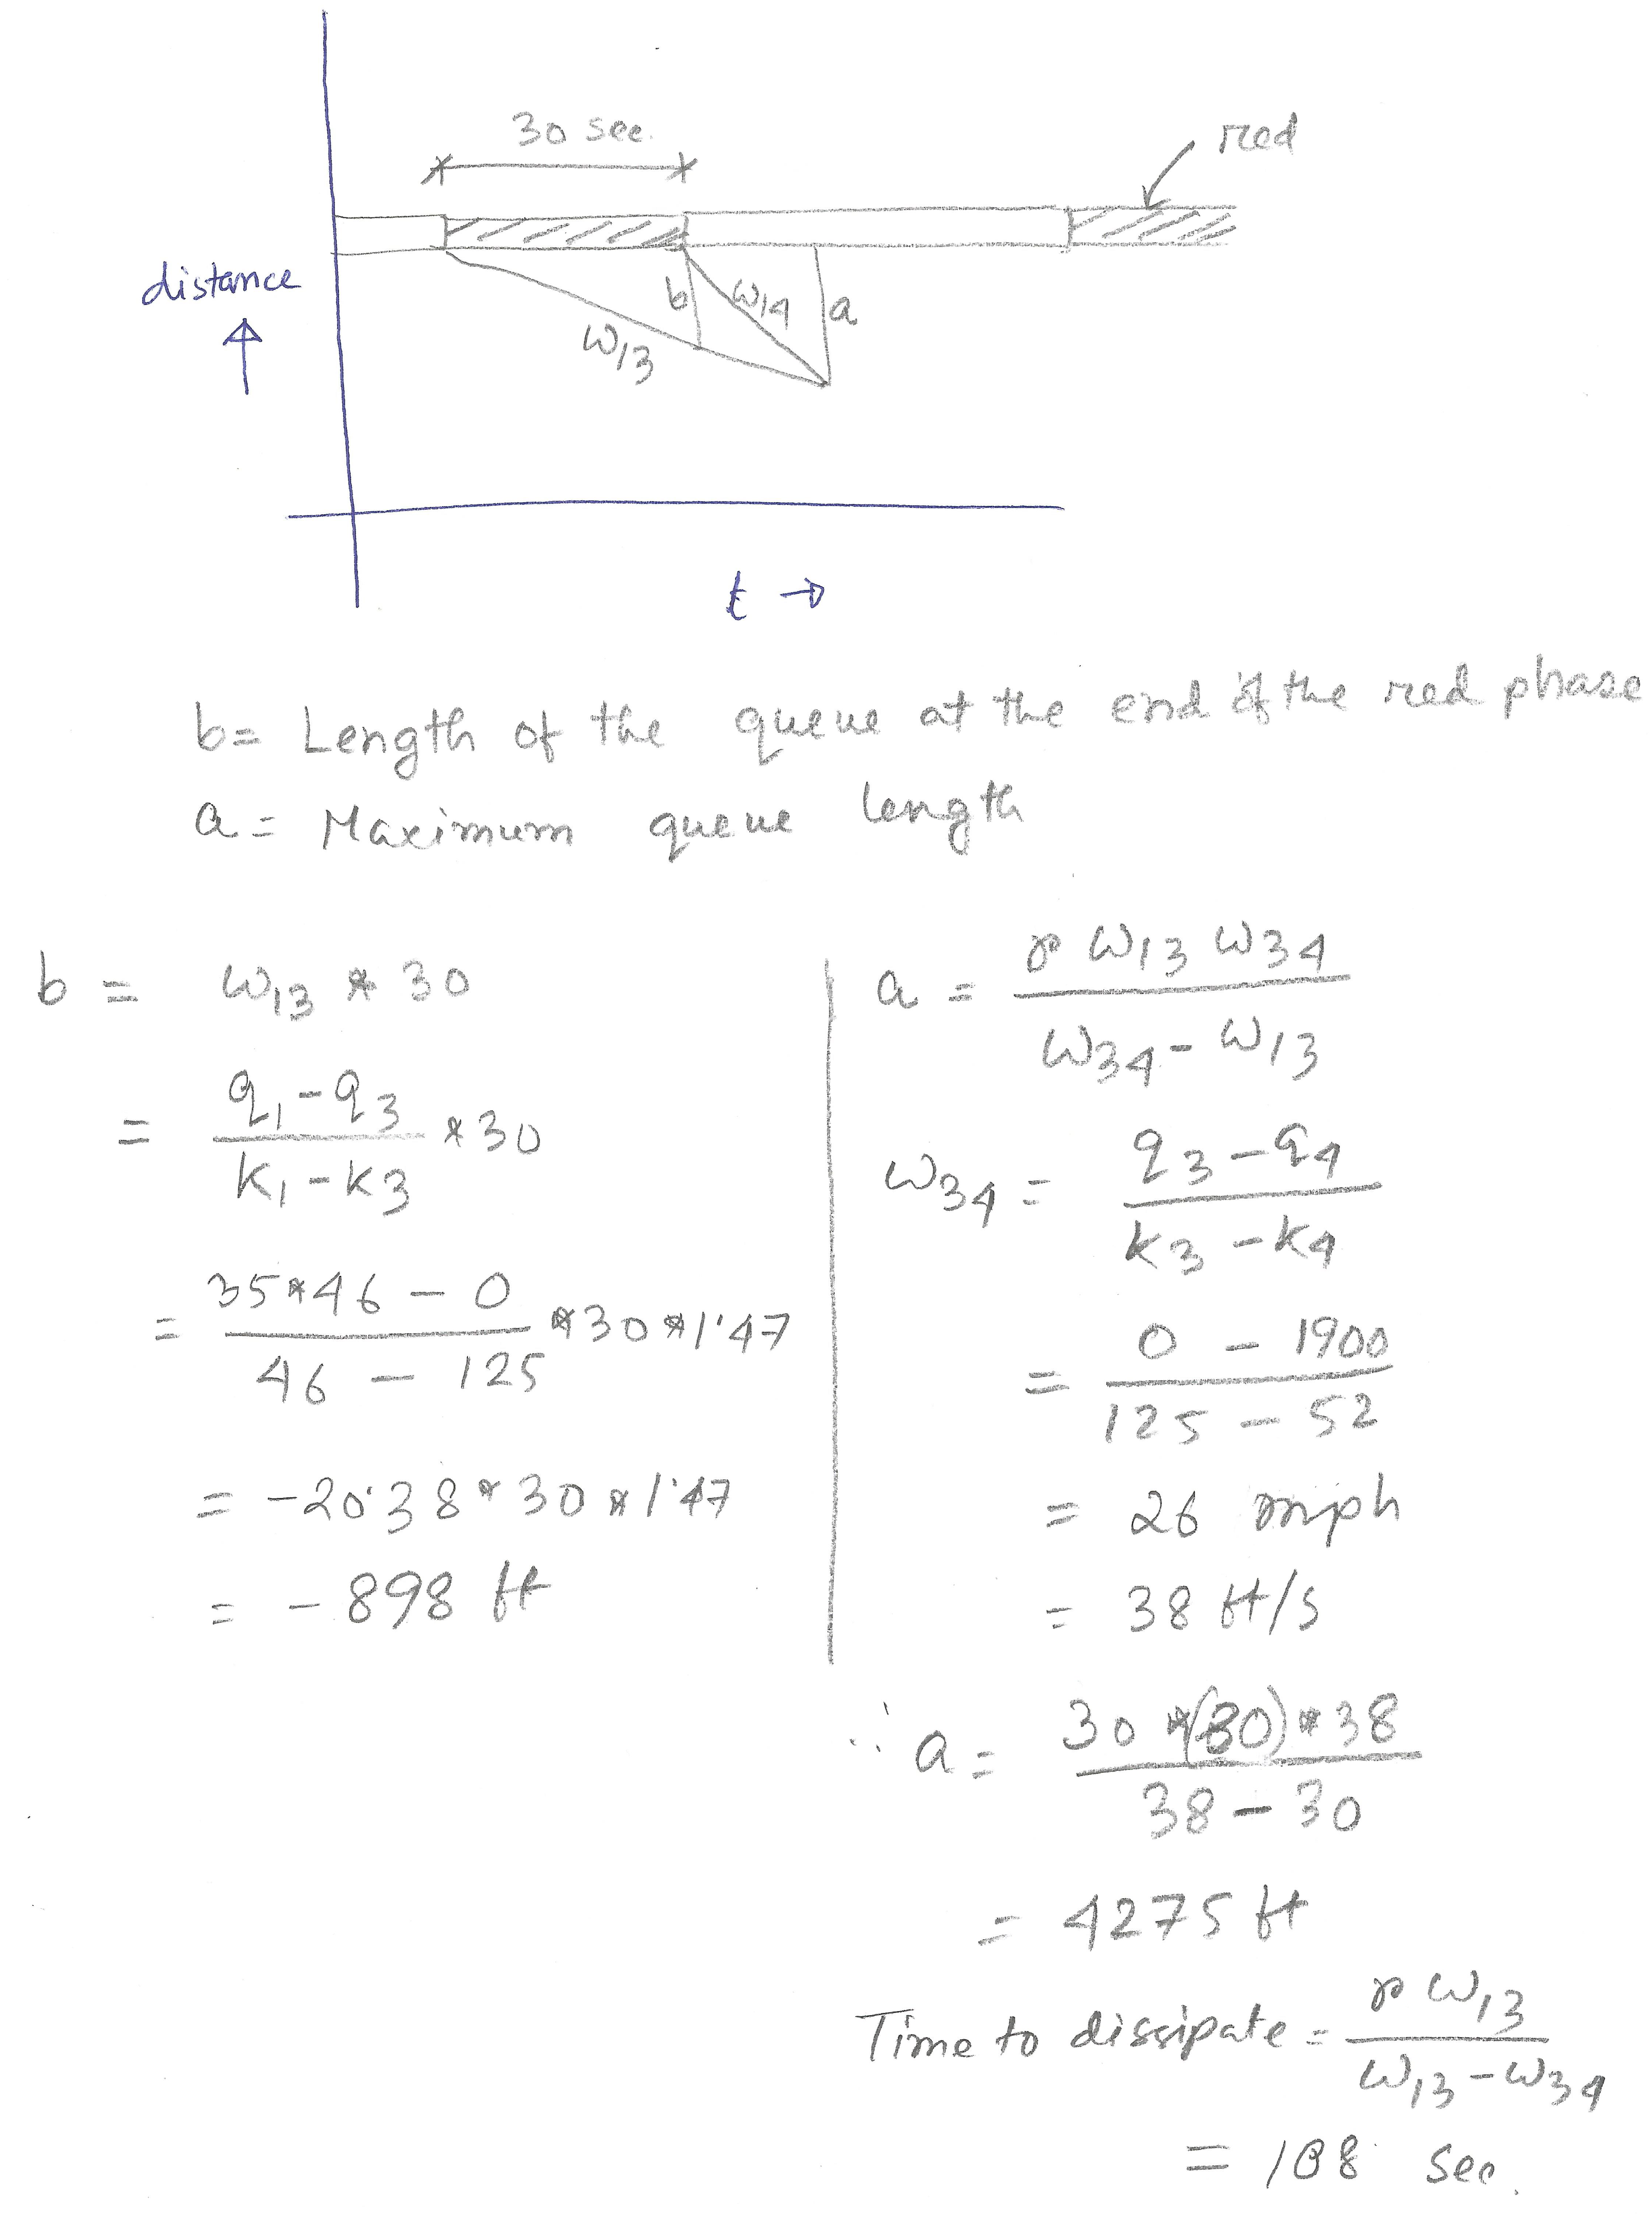 30 sec.
red
distance
b
ω14
a
ω13
t →
b = Length of the queue at the end of the red phase
a = Maximum queue length
b = ω13 * 30
= (q1 - q3) / (K1 - K3) * 30
= (35*46 - 0) / (46 - 125) * 30 * 1.47
= -20.38 * 30 * 1.47
= -898 ft
a = r ω13 ω34 / (ω34 - ω13)
ω34 = (q3 - q4) / (K3 - K4)
= (0 - 1900) / (125 - 52)
= 26 mph
= 38 ft/s
∴ a = 30 * (30) * 38 / (38 - 30)
= 4275 ft
Time to dissipate = r ω13 / (ω13 - ω34)
= 108 sec.